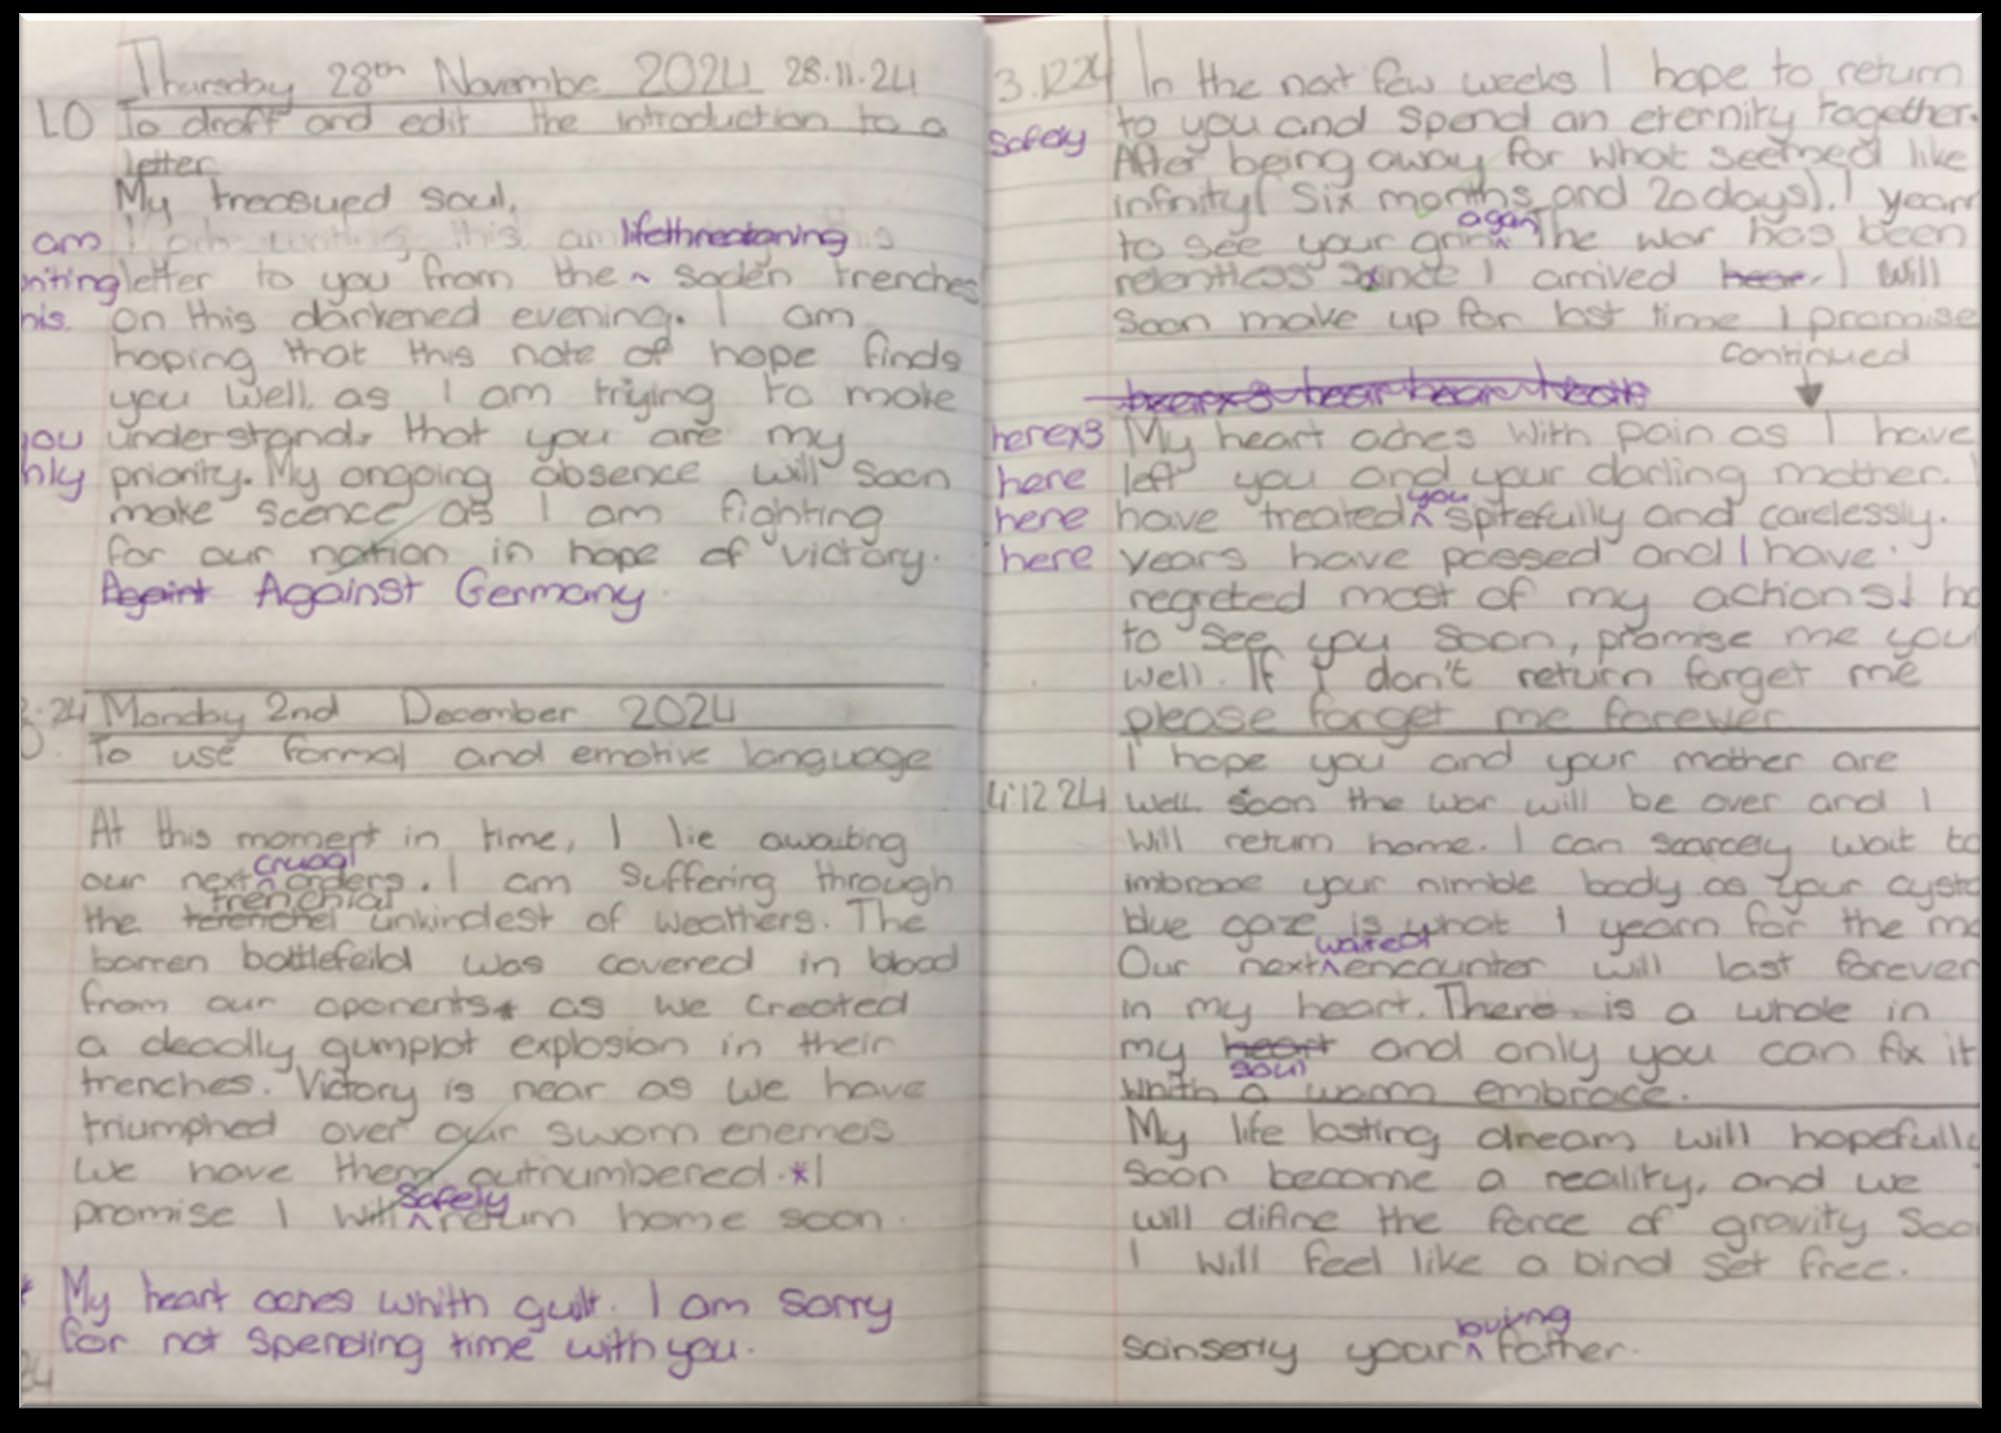 Thursday 28th Novembe 2024 28.11.24
LO To draft and edit the introduction to a
letter
My treasued soul,
am I am writing this an lifethreatoning
letter to you from the ^ soden trenches
on this darkened evening. I am
hoping that this note of hope finds
you well. as I am triying to make
you understand, that you are my
priority. My ongoing absence will soon
make scence as I am fighting
for our nation in hope of victory.
Againt Against Germany.
Monday 2nd December 2024
To use formal and emotive language
At this moment in time, I lie awaiting
crucial
our next ^ orders. I am suffering through
trenchial
the terenchel unkindest of weathers. The
barren battlefeild was covered in blood
from our oponents* as we created
a deadly gumplot explosion in their
trenches. Victory is near as we have
triumphed over our sworn enemeis
we have them outnumbered. * I
safely
promise I will ^ return home soon.
* My heart aches whith guilt. I am sorry
for not spending time with you.
3.12.24 In the next few weeks I hope to return
safely to you and spend an eternity together.
After being away for what seemed like
infinity( six months and 20 days). I yearn
again
to see your grin ^ The war has been
relentless since I arrived hear. I will
soon make up for lost time I promise
continued
herex3 My heart aches with pain as I have
here left you and your darling mother. I
you
here have treated ^ spitefully and carelessly.
here years have passed and I have
regreted most of my actions I ho
to see you soon, promise me you
well. If I don't return forget me
please forget me forever
I hope you and your mother are
4.12.24 well. soon the war will be over and I
will return home. I can scarcely wait to
imbrace your nimble body as your cysta
blue gaze is what I yearn for the mo
waited
Our next ^ encounter will last forever
in my heart. There is a whole in
my heart and only you can fix it
soul
whith a warm embrace.
My life lasting dream will hopefully
soon become a reality, and we
will difine the force of gravity Soo
I will feel like a bird set free.
sainserly your ^ father.